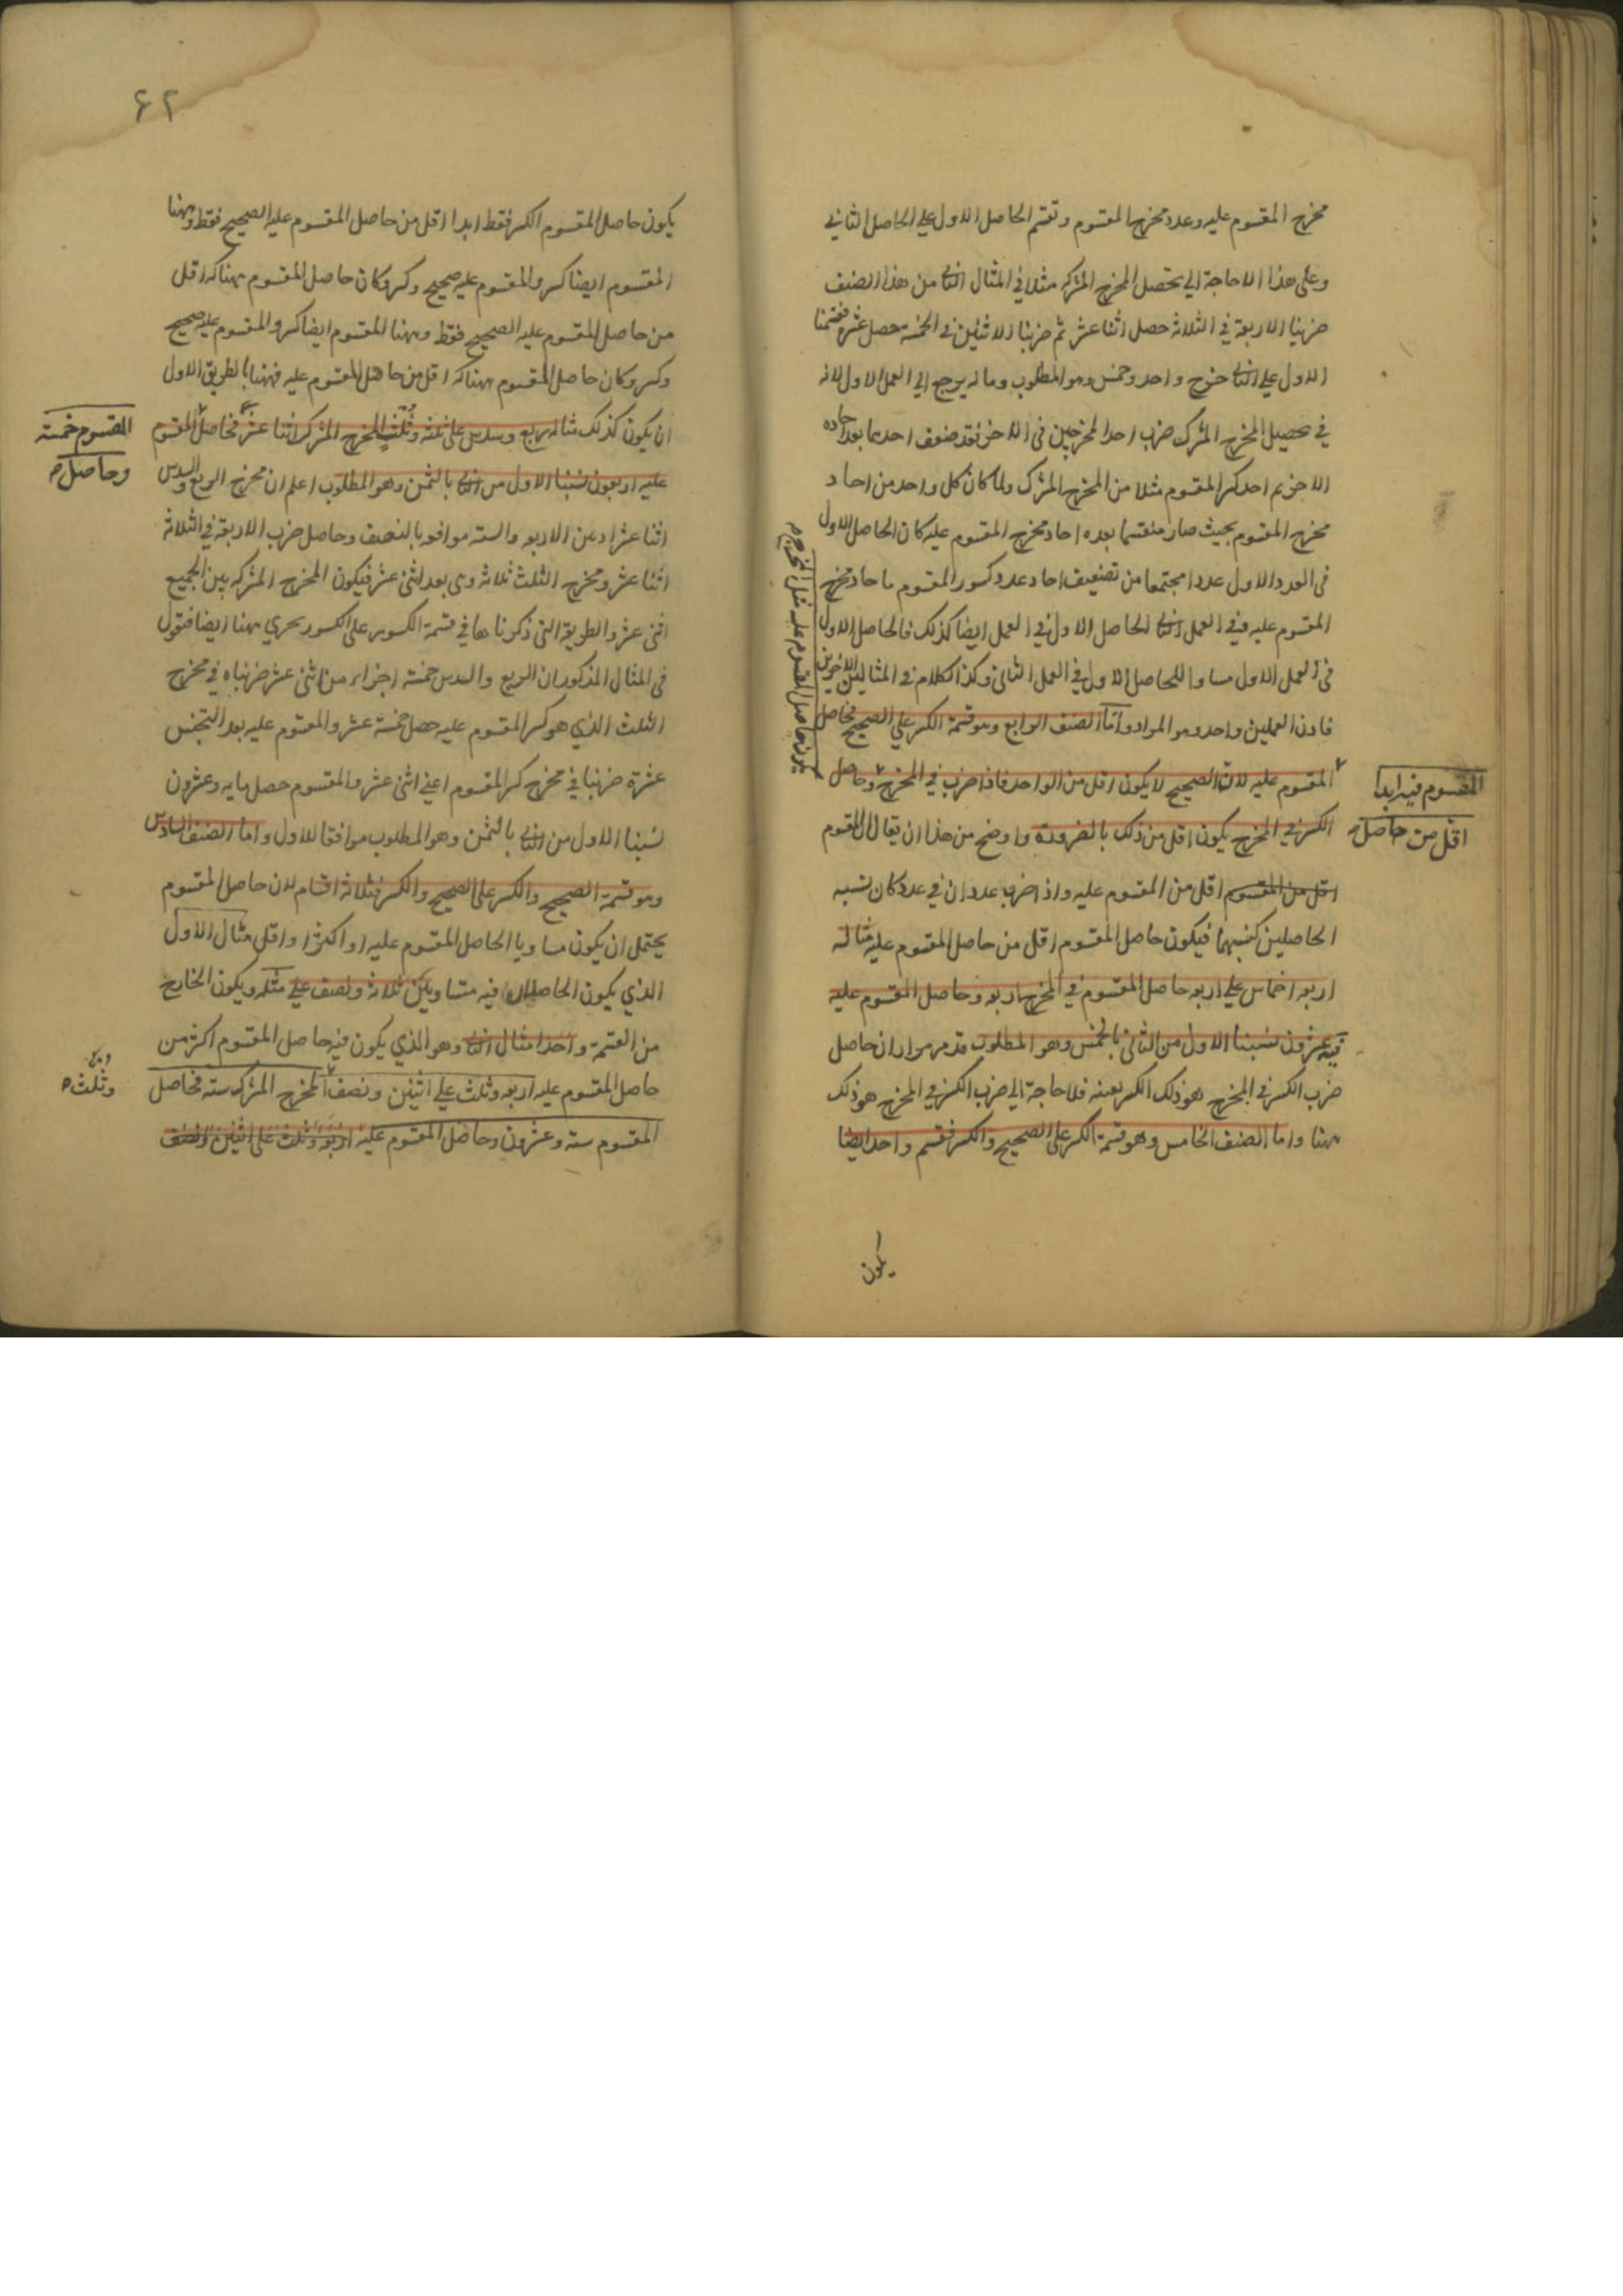 مخرج المقسوم عليه وعدد مخرج المقسوم وتقسم الحاصل الاول على الحاصل الثاني
وعلى هذا لا حاجة الى تحصيل المخرج المشترك مثلا في المثال الثانى من هذا الصنف
ضربنا الاربعة في الثلاثة حصل اثنا عشر ثم ضربنا الاثنين في الخمسة حصل عشرة فقسمنا
الاول على الثانى خرج واحد وخمس وهو المطلوب وماله يرجع الى العمل الاول لانه
في تحصيل المخرج المشترك ضرب احد المخرجين في الآخر فقد ضوعف احدهما بعدد احاد
الآخر ثم احد كسر المقسوم مثلا من المخرج المشترك ولما كان كل واحد من احاد
مخرج المقسوم بحيث صار منقسما بعدة احاد مخرج المقسوم عليه كان الحاصل الاول
في العدد الاول عددا مجتمعا من تضعيف احاد عدد كسور المقسوم باحاد مخرج
المقسوم عليه ففي العمل الثانى الحاصل الاول في العمل ايضا كذلك فالحاصل الاول
في العمل الاول مساو للحاصل الاول في العمل الثاني وكذا الكلام في المثالين الآخرين
فاذن العملين واحد وهو المراد واما الصنف الرابع وهو قسمة الكسر على الصحيح فحاصل
المقسوم عليه لان الصحيح لا يكون اقل من الواحد فاذا ضرب في المخرج وحاصل
الكسر في المخرج يكون اقل من ذلك بالضرورة واوضح من هذا ان يقال المقسوم
اقل من المقسوم اقل من المقسوم عليه واذا ضرب عددان في عدد كان نسبة
الحاصلين كنسبتهما فيكون حاصل المقسوم اقل من حاصل المقسوم عليه مثاله
اربعة اخماس على اربعة حاصل المقسوم في المخرج اربعة وحاصل المقسوم عليه
فيه عشرون نسبنا الاول من الثانى بالخمس وهو المطلوب قد مر مرارا ان حاصل
ضرب الكسر في المخرج هو ذلك الكسر بعينه فلا حاجة الى ضرب الكسر في المخرج هو ذلك
ههنا واما الصنف الخامس وهو قسمة الكسر على الصحيح والكسر فقسم واحد ايضا
يكون
المقسوم فيه ابدا
اقل من حاصل
يكون حاصل المقسوم عليه مثل المخرج
٦٢
يكون حاصل المقسوم الكسر فقط ابدا اقل من حاصل المقسوم عليه الصحيح فقط وههنا
المقسوم ايضا كسر والمقسوم عليه صحيح وكسر وكان حاصل المقسوم هناك اقل
من حاصل المقسوم عليه الصحيح فقط وههنا المقسوم ايضا كسر والمقسوم عليه صحيح
وكسر وكان حاصل المقسوم هناك اقل من حاصل المقسوم عليه فههنا بالطريق الاول
ان يكون كذلك مثاله ربع وسدس على ثلثة وثلث المخرج المشترك اثنا عشر فحاصل المقسوم
عليه اربعون نسبنا الاول من الثانى بالثمن وهو المطلوب اعلم ان مخرج الربع والسدس
اثنا عشر اذ بين الاربعة والستة موافقة بالنصف وحاصل ضرب الاربعة في الثلاثة
اثنا عشر ومخرج الثلث ثلاثة وهى بعد اثنى عشر فيكون المخرج المشترك بين الجميع
اثنى عشر والطريقة التي ذكرناها في قسمة الكسور على الكسور يجري ههنا ايضا فنقول
في المثال المذكور ان الربع والسدس خمسة اجزاء من اثنى عشر ضربناه في مخرج
الثلث الذي هو كسر المقسوم عليه حصل خمسة عشر والمقسوم عليه بعد التجنيس
عشرة ضربنا في مخرج كسر المقسوم اعنى اثنى عشر والمقسوم حصل مايه وعشرون
نسبنا الاول من الثانى بالثمن وهو المطلوب موافقا للاول واما الصنف السادس
وهو قسمة الصحيح والكسر على الصحيح والكسر فثلاثة اقسام لان حاصل المقسوم
يحتمل ان يكون مساويا لحاصل المقسوم عليه او اكثر او اقل مثال الاول
الذي يكون الحاصلان فيه متساويين ثلاثة ونصف على مثله ويكون الخارج
من القسمة واحدا مثال الثانى وهو الذي يكون فيه حاصل المقسوم اكثر من
حاصل المقسوم عليه اربعة وثلث على اثنين ونصف المخرج المشترك ستة فحاصل
المقسوم ستة وعشرون وحاصل المقسوم عليه اربعة وثلث على اثنين ونصف
المقسوم خمسة
وحاصل
وثلث